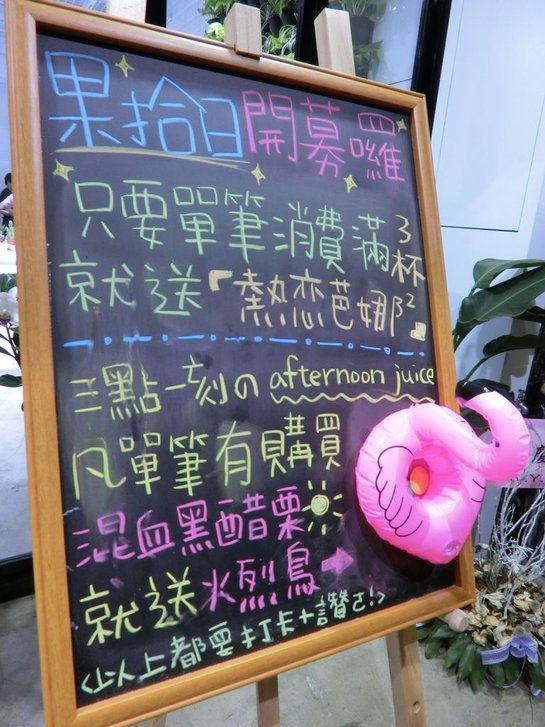 果拾日開幕囉
只要單筆消費滿3杯
就送『熱戀芭娜ß²』
三點一刻の afternoon juice
凡單筆有購買
混血黑醋栗
就送火烈鳥→
<以上都要打卡+讚才!>